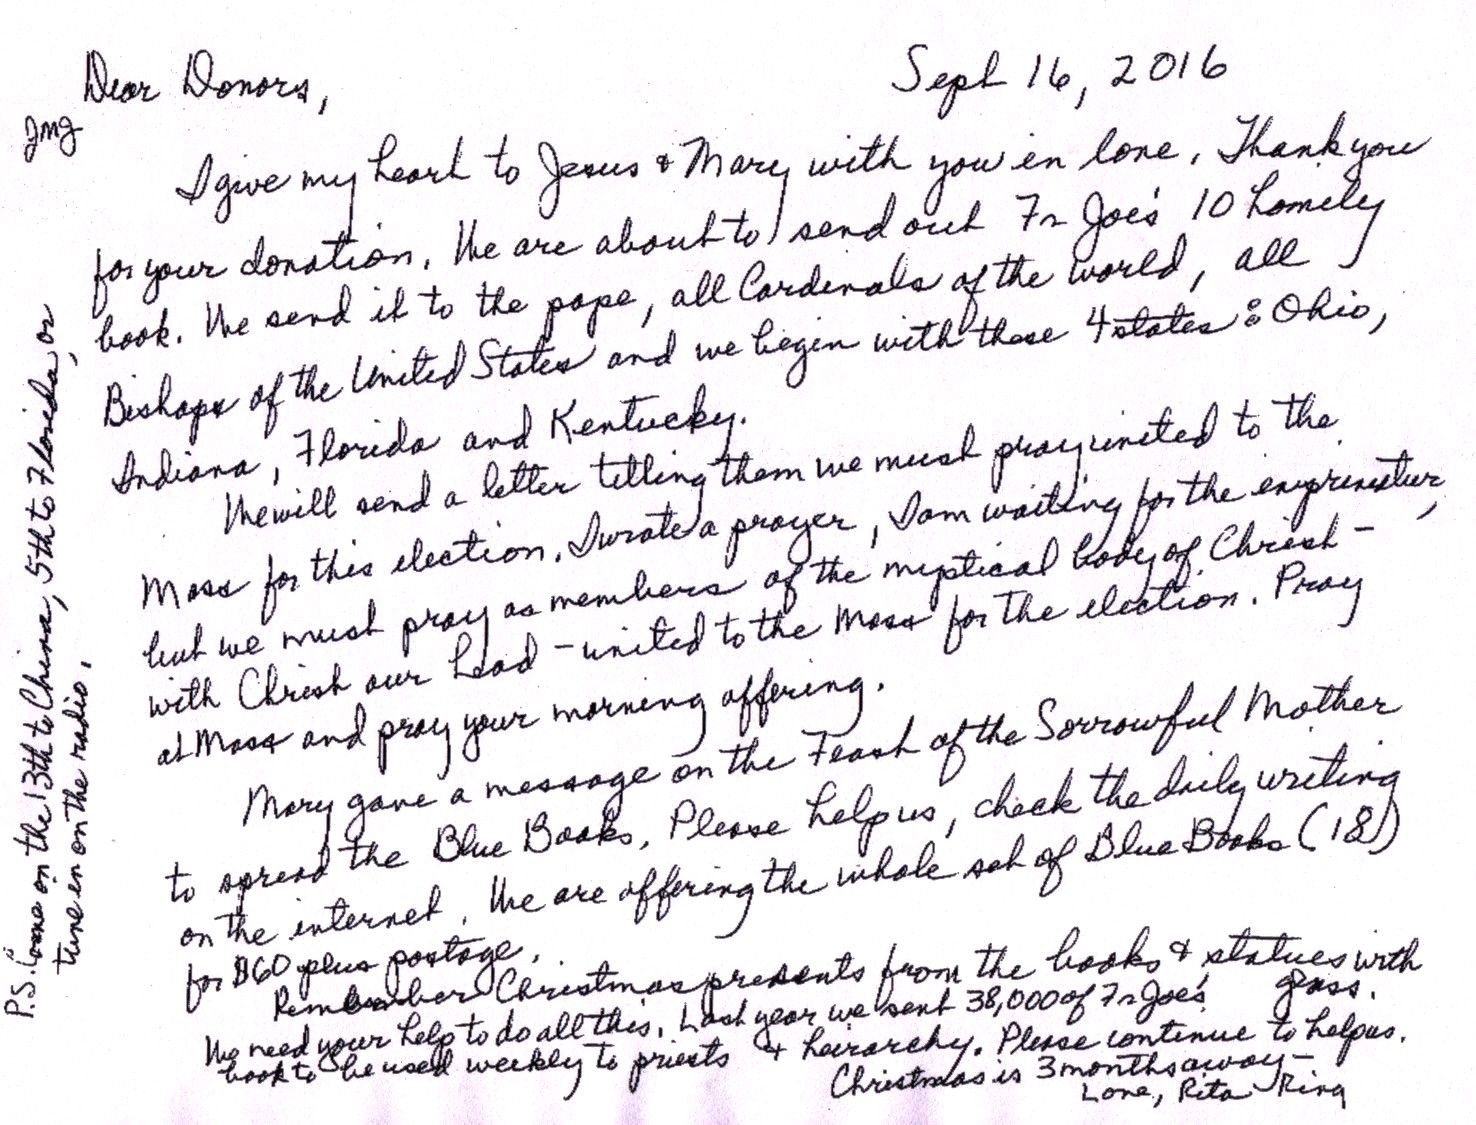 Sept 16, 2016
Dear Donors,
JMJ
I give my heart to Jesus & Mary with you in love. Thank you
for your donation. We are about to send out Fr Joe's 10 homily
book. We send it to the pope, all Cardinals of the world, all
Bishops of the United States and we begin with these 4 states: Ohio,
Indiana, Florida and Kentucky.
We will send a letter telling them we must pray united to the
Mass for this election. I wrote a prayer, I am waiting for the
but we must pray as members of the mystical body of Christ -
with Christ our head - united to the Mass for the election. Pray
at Mass and pray your morning offering.
Mary gave a message on the Feast of the Sorrowful Mother
to spread the Blue Books. Please help us, check the daily writing
on the internet. We are offering the whole set of Blue Books (18)
for $60 plus postage.
Remember Christmas presents from the books & statues with
glass.
We need your help to do all this. Last year we sent 38,000 of Fr Joe's
book to be used weekly to priests & heirarchy. Please continue to help us.
Christmas is 3 months away -
Love, Rita Ring
P.S. Come on the 13th to China, 5th to Florida, or
tune in on the radio.